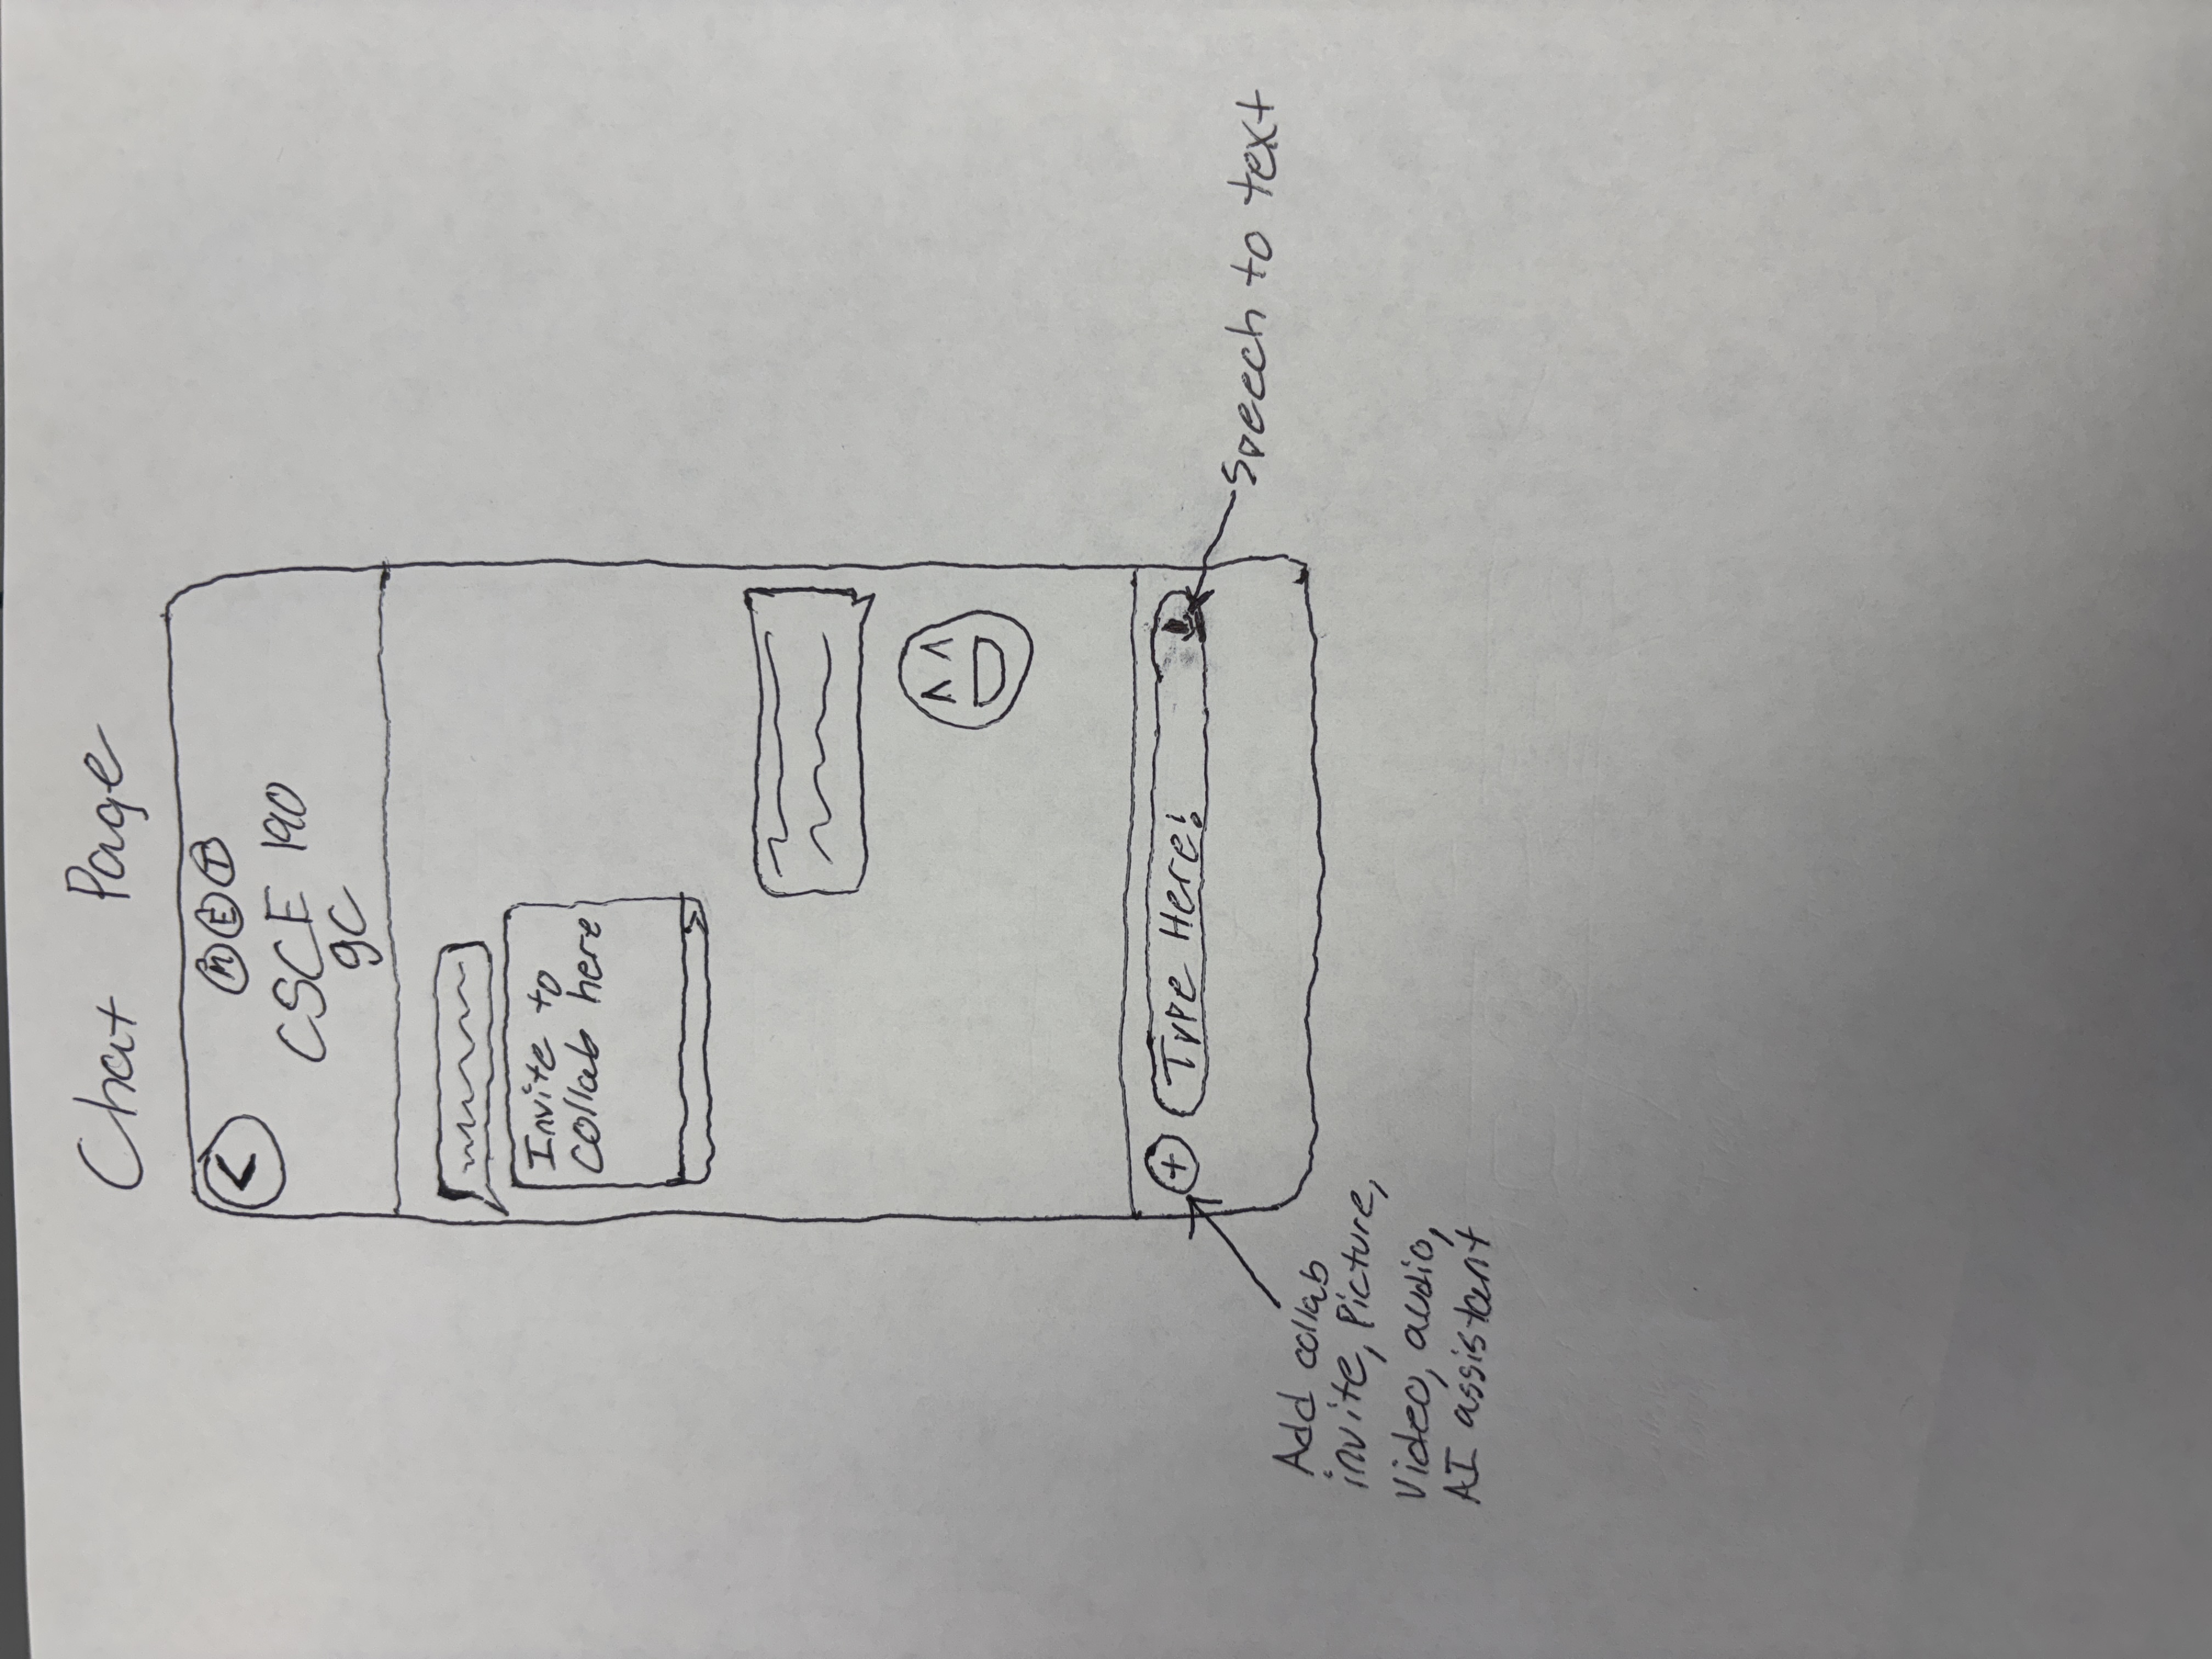 Chat Page
<
M E T
CSCE 190
gc
Invite to
collab here
>
+ Type Here!
Speech to text
Add collab
invite, Picture,
Video, audio,
AI assistant